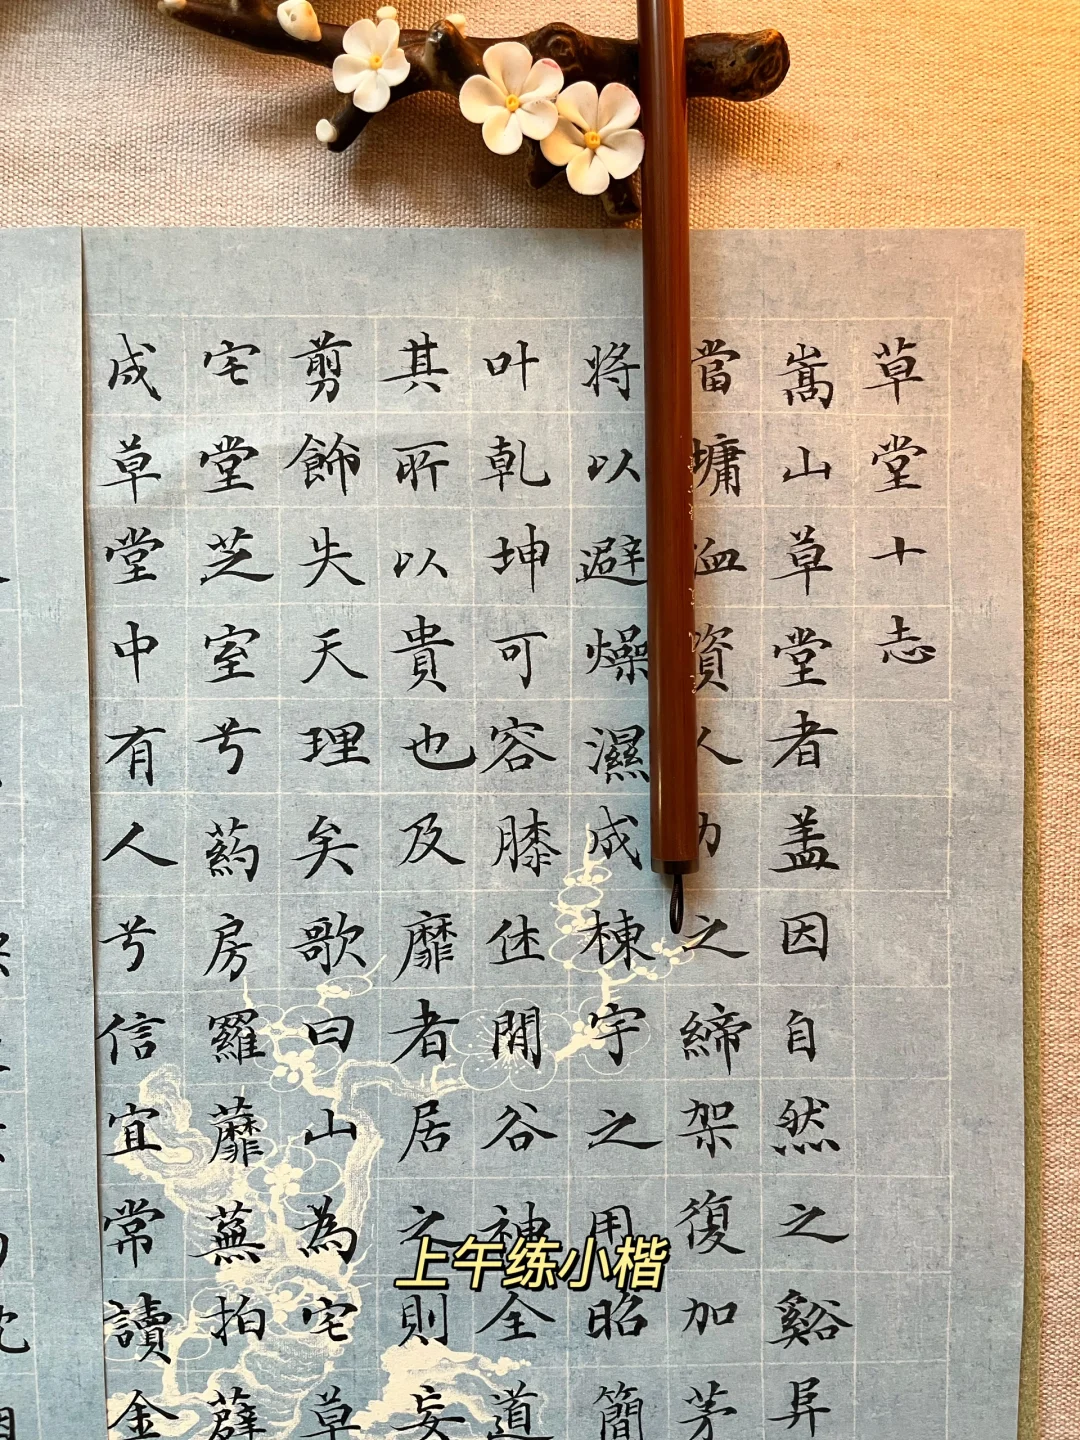 草堂十志
嵩山草堂者盖因自然之谿阜
當墉洫資人力之締架復加茅
將以避燥濕成棟宇之用昭簡
叶乾坤可容膝休閒谷神全道
其所以貴也及靡者居之則妄
剪飾失天理矣歌曰山為宅草
宅堂芝室兮葯房羅蘼蕪拍薜
成草堂中有人兮信宜常讀金
上午练小楷